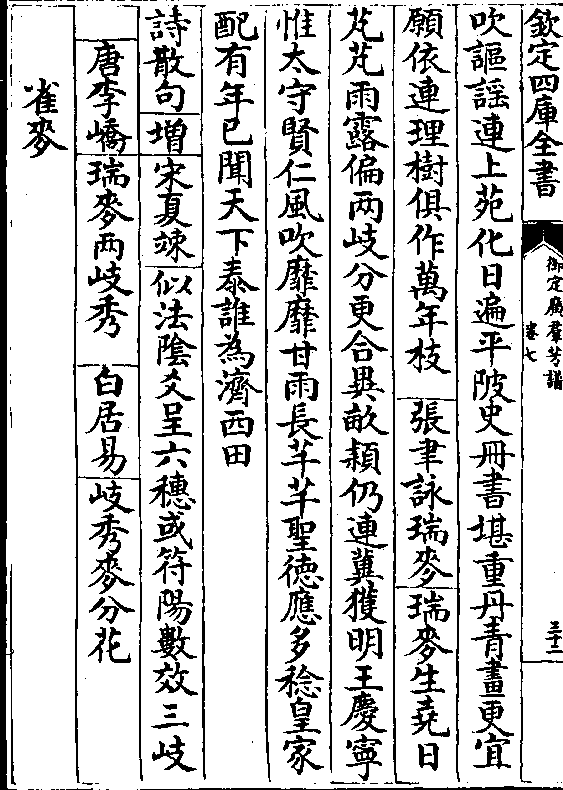 欽定四庫全書
御定廣羣芳譜
卷七
三十二
吹謳謡連上苑化日遍平陂史冊書堪重丹青畫更宜
願依連理樹俱作萬年枝 張聿詠瑞麥 瑞麥生堯日
芃芃雨露偏两岐分更合異畝穎仍連冀獲明王慶寧
惟太守賢仁風吹靡靡甘雨長芊芊聖徳應多稔皇家
配有年已聞天下泰誰為濟西田
詩散句 増 宋夏竦 似法隂爻呈六穗或符陽數效三岐
唐李嶠 瑞麥两岐秀 白居易 岐秀麥分花
雀麥